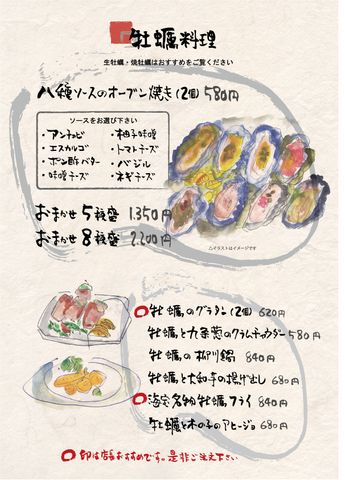 牡蠣料理
生牡蠣・焼牡蠣はおすすめをご覧ください
八種ソースのオーブン焼き(2個) 580円
ソースをお選び下さい
・アンチョビ ・柚子味噌
・エスカルゴ ・トマトチーズ
・ポン酢バター ・バジル
・味噌チーズ ・ネギチーズ
おまかせ5種盛 1.350円
おまかせ8種盛 2.200円
△イラストはイメージです
○牡蠣のグラタン(2個) 620円
牡蠣と九条葱のクラムチャウダー 580円
牡蠣の柳川鍋 840円
牡蠣と大和芋の揚げ出し 680円
○海宝名物牡蠣フライ 840円
牡蠣と木の子のアヒージョ 680円
○印は店長おすすめです。是非ご注文下さい